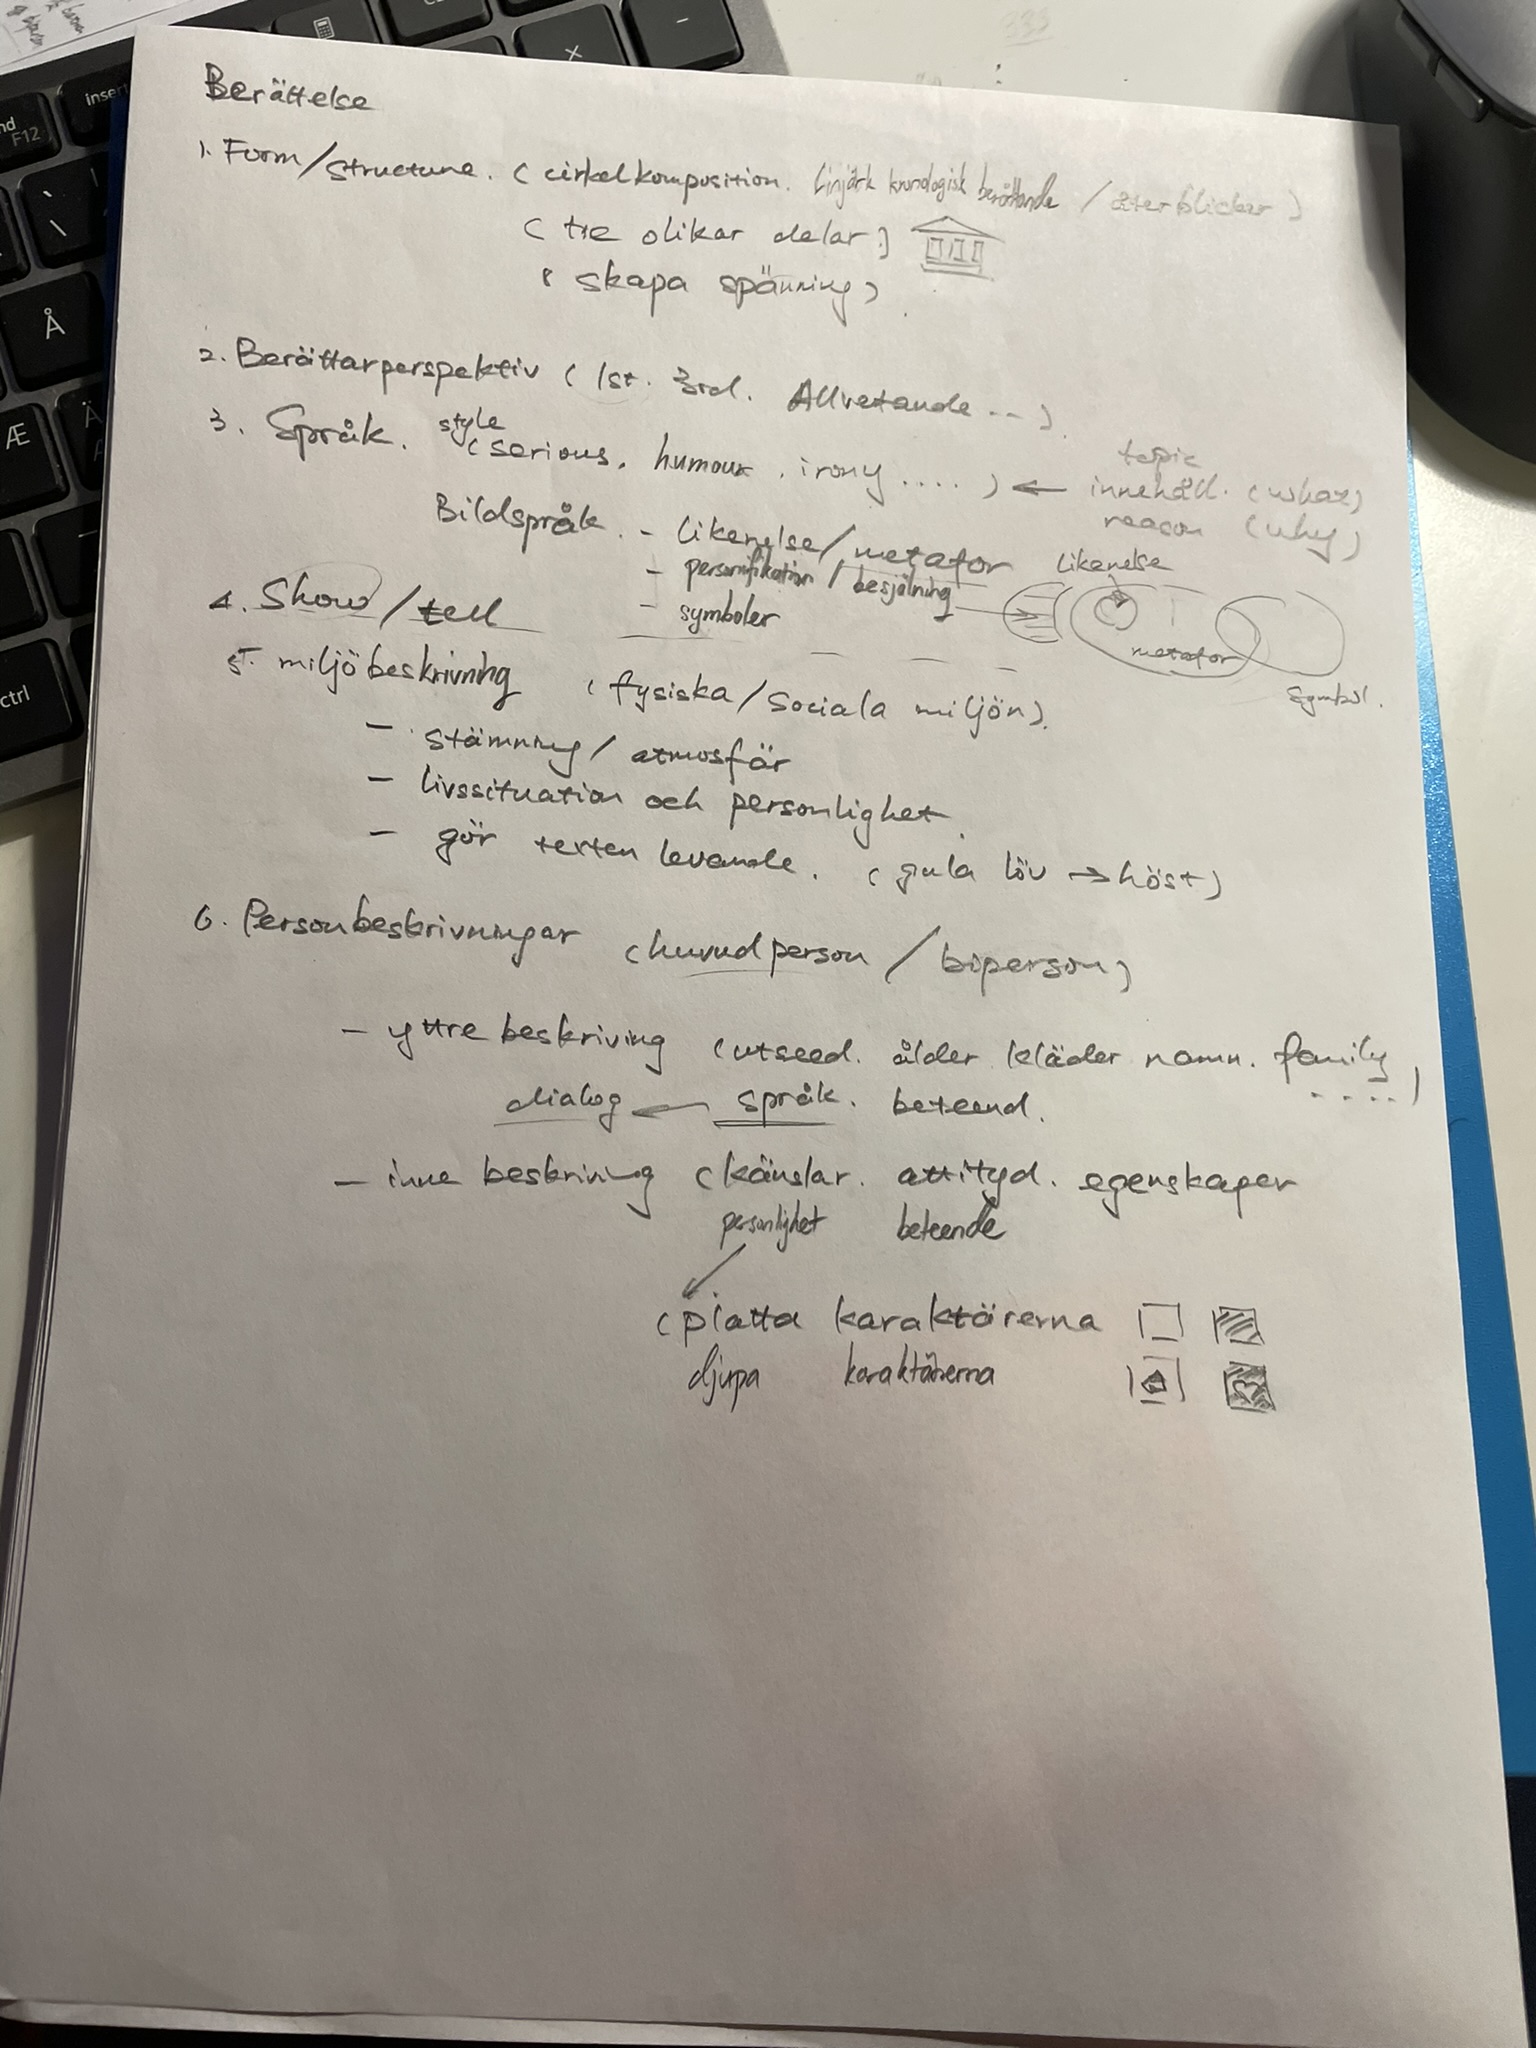 Berättelse
1. Form/structure. (cirkelkomposition. Linjärk kronologisk berättande / återblickar)
(tre olikar delar)
(skapa spänning)
2. Berättarperspektiv (1st. 3rd. Allvetande ...)
3. Språk. style (serious, humour, irony ....) ← topic
innehåll. (what)
reason (why)
Bildspråk. - Likenelse/metafor
- personifikation / besjälning
- symboler
Likenelse
metafor
Symbol.
4. Show/tell
5. miljöbeskrivning (fysiska/sociala miljön).
- stämning/atmosfär
- livssituation och personlighet.
- gör texten levande. (gula löv → höst)
6. Personbeskrivningar (huvudperson / biperson)
- yttre beskriving (utseed. ålder kläder namn. family ....)
dialog ← språk. beteend.
- inre beskriving (känslar. attityd. egenskaper
personlighet beteende
(platta karaktärerna
djupa karaktärerna
insert
F12
Å
Æ
Ä
ctrl